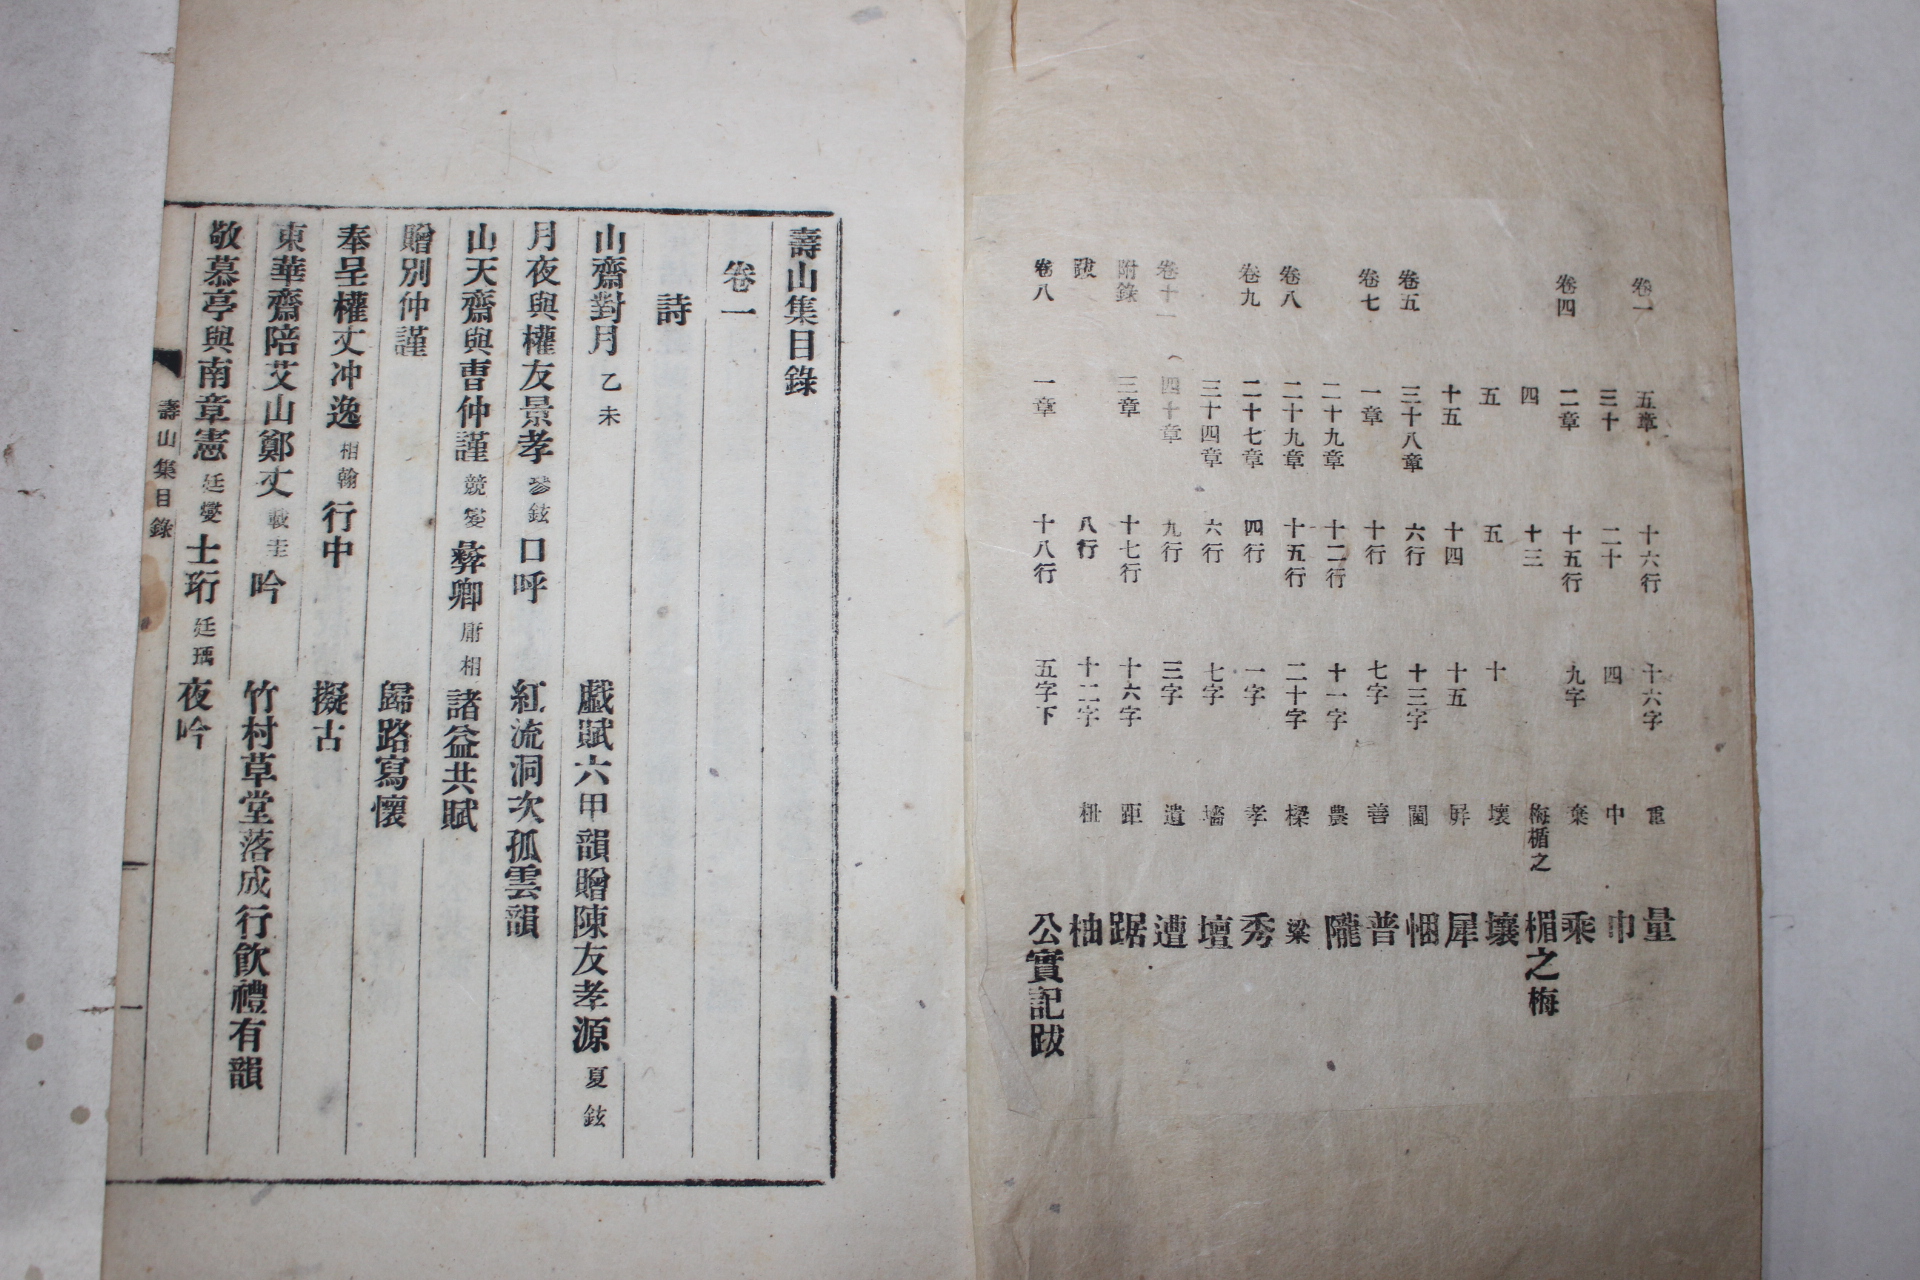 卷一 五章 十六行 十六字 重 量
三十 二十 四 中 巾
卷四 二章 十五行 九字 棄 乘
四 十三 梅楣之 楣之梅
五 五 十 壞 壤
十五 十四 十五 屛 犀
卷五 三十八章 六行 十三字 悃
卷七 一章 十行 七字 善 普
二十九章 十二行 十一字 農 隴
卷八 二十九章 十五行 二十字 樑 粱
卷九 二十七章 四行 一字 孝 秀
三十四章 六行 七字 墻 壇
卷十一 四十章 九行 三字 遺 遭
附錄 三章 十七行 十六字 距 踞
跋 八行 十二字 柚
卷八 一章 十八行 五字下 公實記跋
壽山集目錄
卷一
詩
山齋對月 乙未 戱賦六甲韻贈陳友孝源 夏鉉
月夜與權友景孝 鉉 口呼 紅流洞次孤雲韻
山天齋與曺仲謹 競燮 彛卿 庸相 諸益共賦
贈別仲謹 歸路寫懷
奉呈權丈冲逸 相翰 行中 擬古
東華齋陪艾山鄭丈 載圭 吟 竹村草堂落成行飮禮有韻
敬慕亭與南章憲 廷燮 士珩 廷瑀 夜吟
壽山集目錄 一